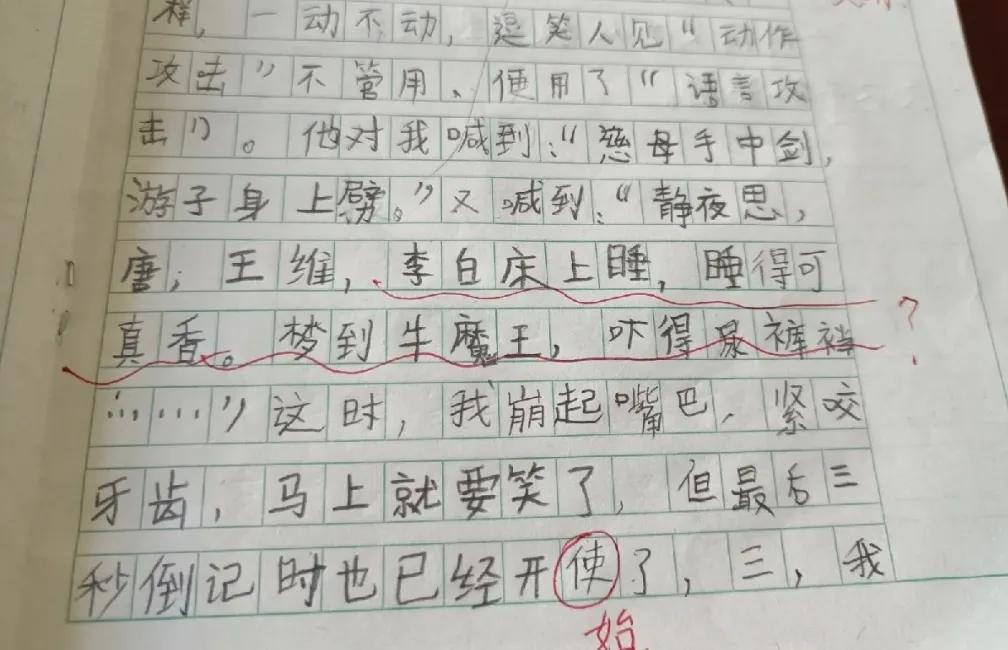 样，一动不动，逗笑人见“动作
攻击”不管用、便用了“语言攻
击”。他对我喊到：“慈母手中剑，
游子身上劈。”又喊到：“静夜思，
唐；王维，李白床上睡，睡得可
真香。梦到牛魔王，吓得尿裤裆
？
……”这时，我崩起嘴巴，紧咬
牙齿，马上就要笑了，但最后三
秒倒记时也已经开使了，三，我
始